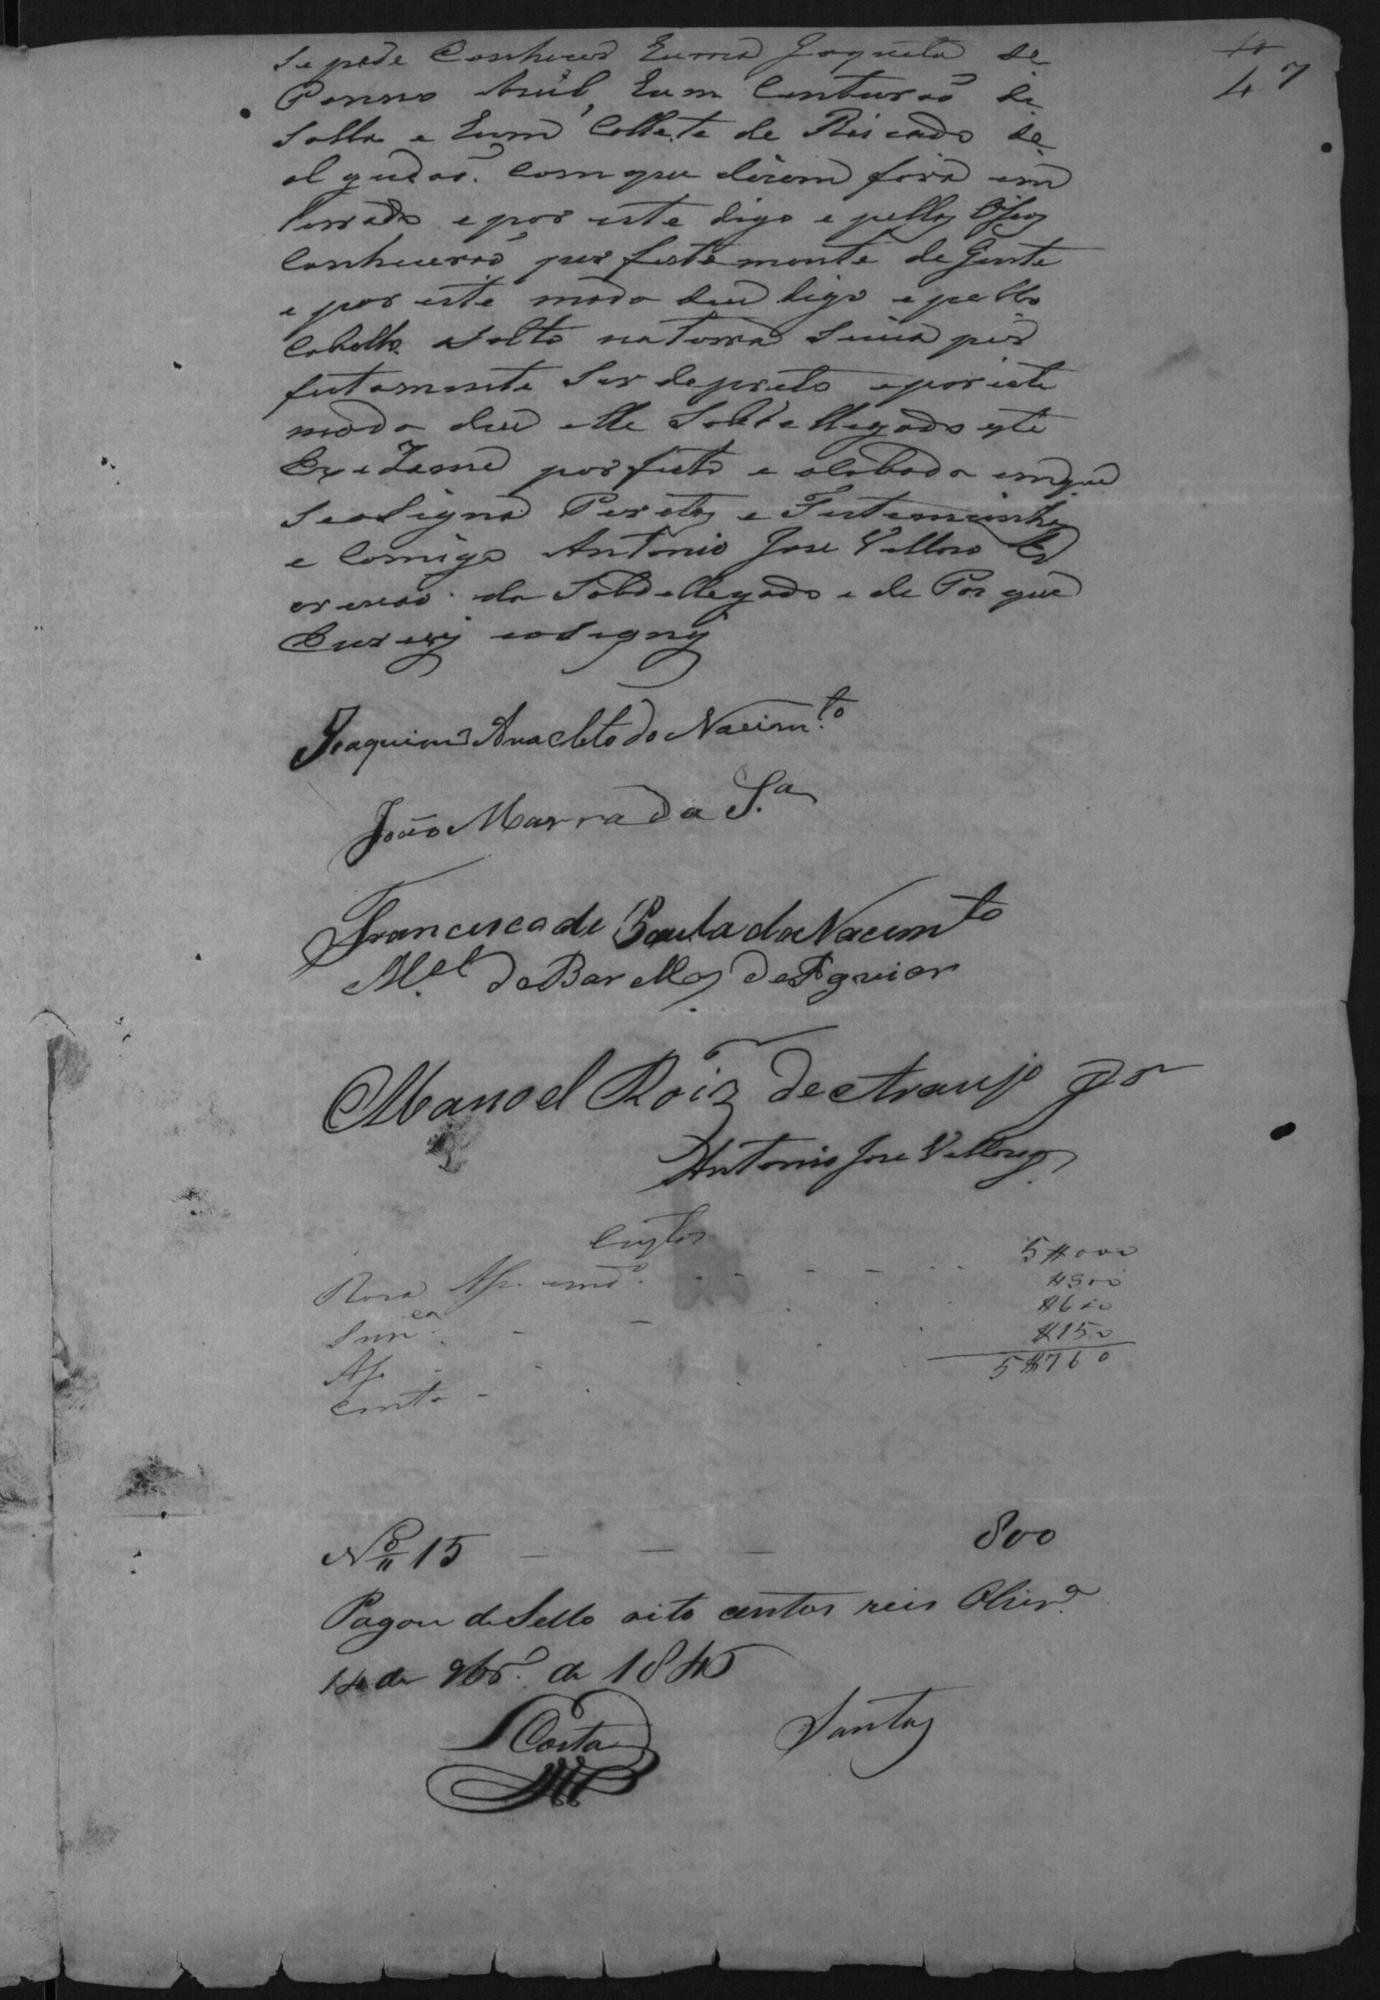 47
Se pode Conhecer huma Jaqueta de
Panno Azul, hum Centurão de
Solla e hum Collete de Riscado de
algudão. Com que dicem fora em
terrado e por este digo e pellos Ossos
Conhecerão perfeitamente de Gente
e por este modo deu digo e pello
Cabello solto na terra
feitamente Ser de preto e por este
modo deu elle Sobdellegado este
Exzame por feito e acabado em que
Se asigna Peritos e Testemunhas
e Comigo Antonio Jose Vellozo Es
crivão da Sobdellegado e de Por que
Escrevy e asigney
Joaquim Anacleto do Nacim.to
João Marra da S.a
Francisco de Paula do Nacim.to
M.el de Barellos de Aguiar
Manoel Roiz de Araujo Jor
Antonio Jose Vellozo
Custos
5#000
#600
#150
Conta
5#760
Nº 15 — — — 800
Pagou de Sello oito centos reis Oliv.ra
14 de 9br.º de 1845
Costa Santos